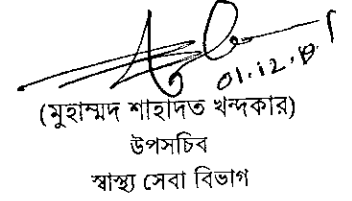 01.12.
(মুহাম্মদ শাহাদত খন্দকার)
উপসচিব
স্বাস্থ্য সেবা বিভাগ